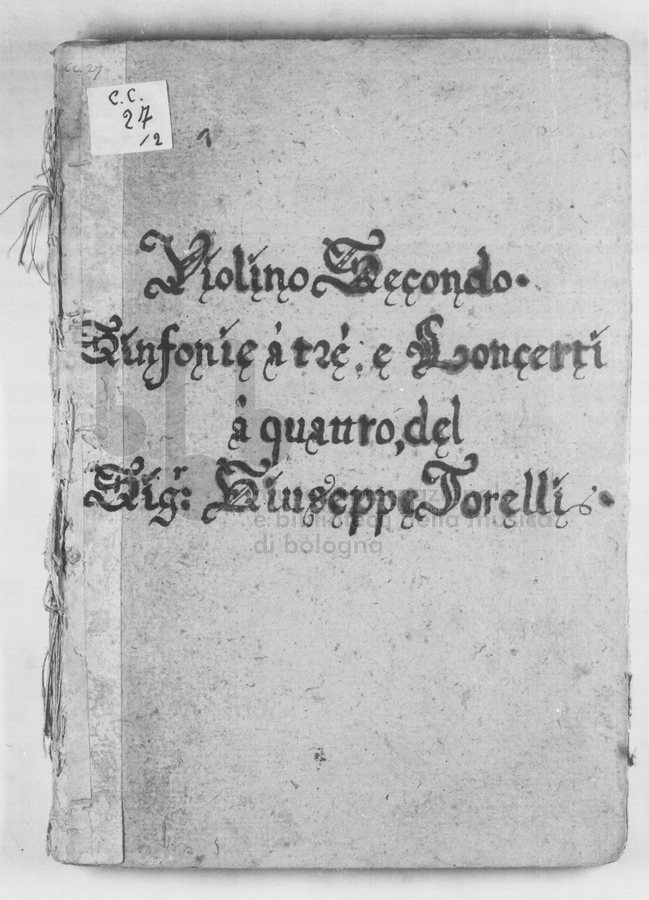 CC. 27
C.C.
27
/2
1
Violino Secondo.
Sinfonie à tré, e Concerti
à quattro, del
Sig.r Giuseppe Torelli.
e biblioteca della musica
di bologna